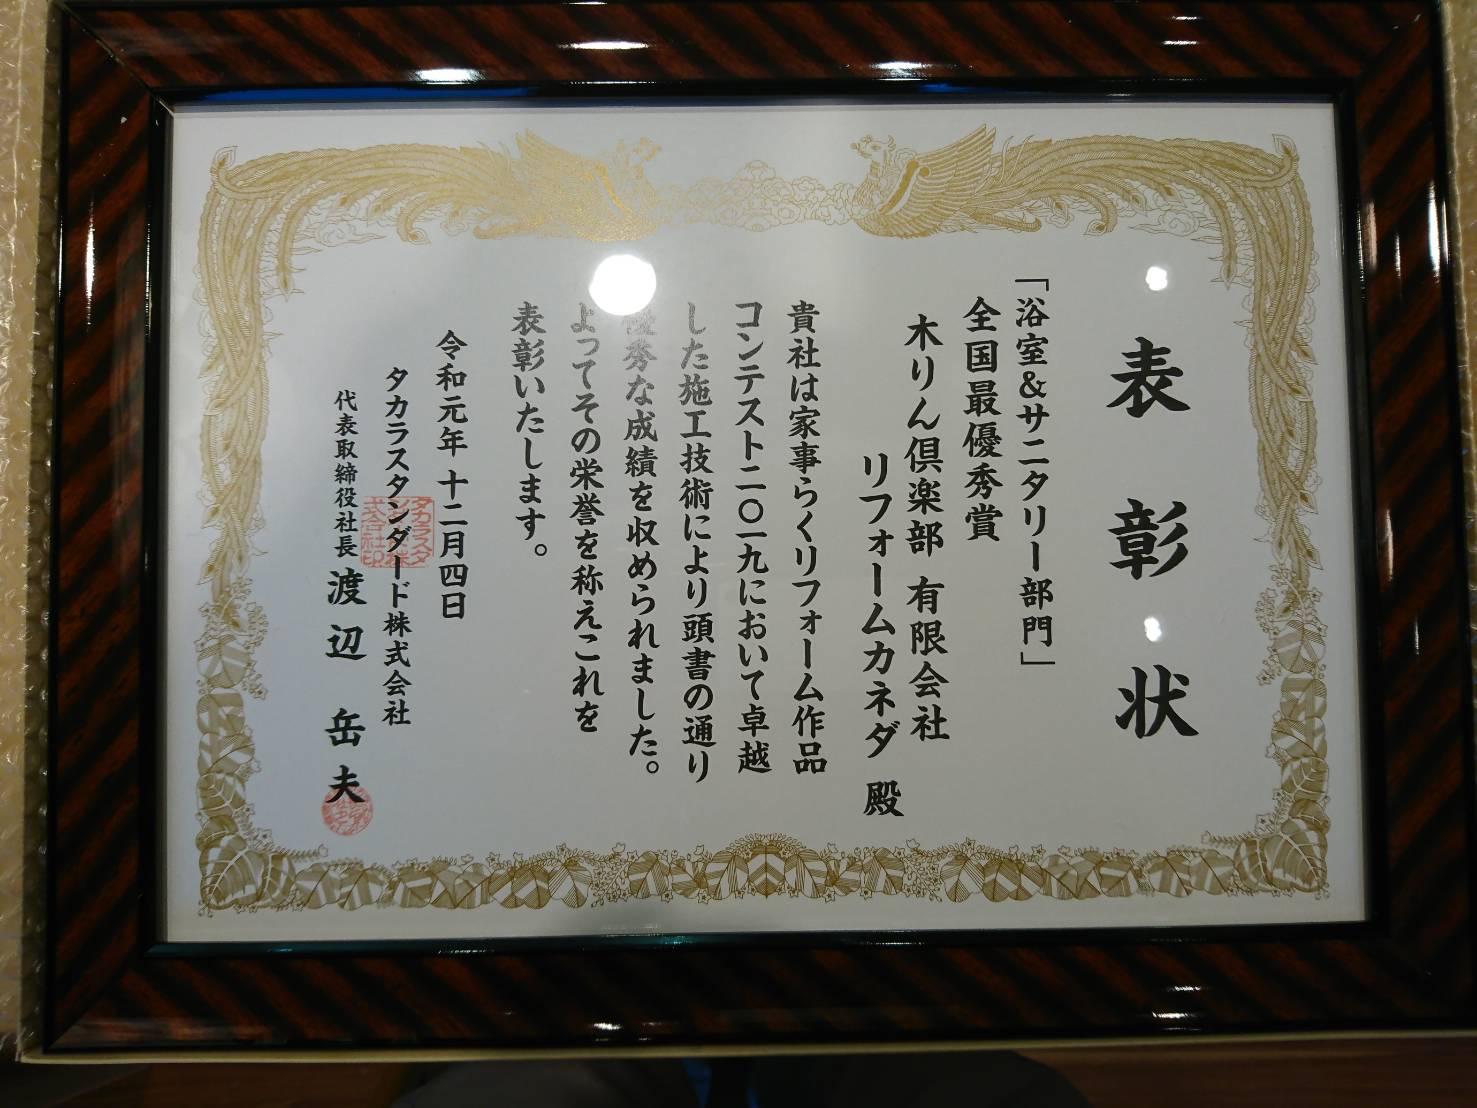 表彰状
「浴室&サニタリー部門」
全国最優秀賞
木りん倶楽部 有限会社
リフォームカネダ 殿
貴社は家事らくリフォーム作品
コンテスト二〇一九において卓越
した施工技術により頭書の通り
優秀な成績を収められました。
よってその栄誉を称えこれを
表彰いたします。
令和元年 十二月四日
タカラスタンダード株式会社
代表取締役社長 渡辺岳夫